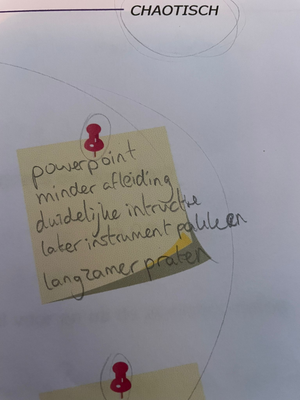 CHAOTISCH
powerpoint
minder afleiding
duidelijke intructie
later instrument pakken
langzamer praten